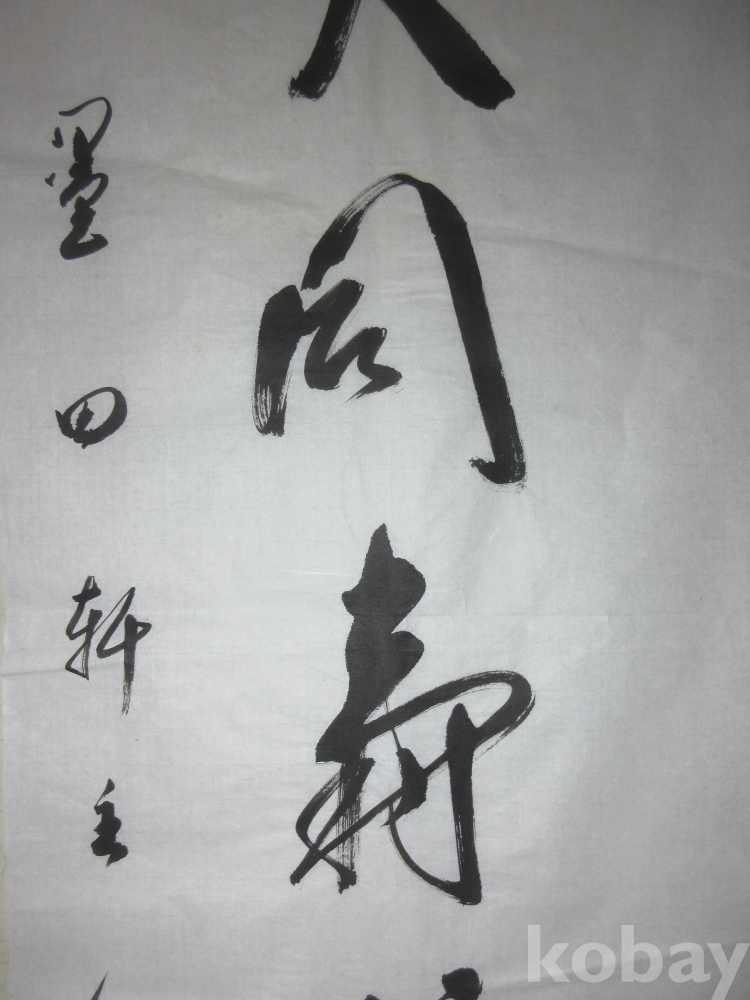 同壽
墨田軒主
kobay